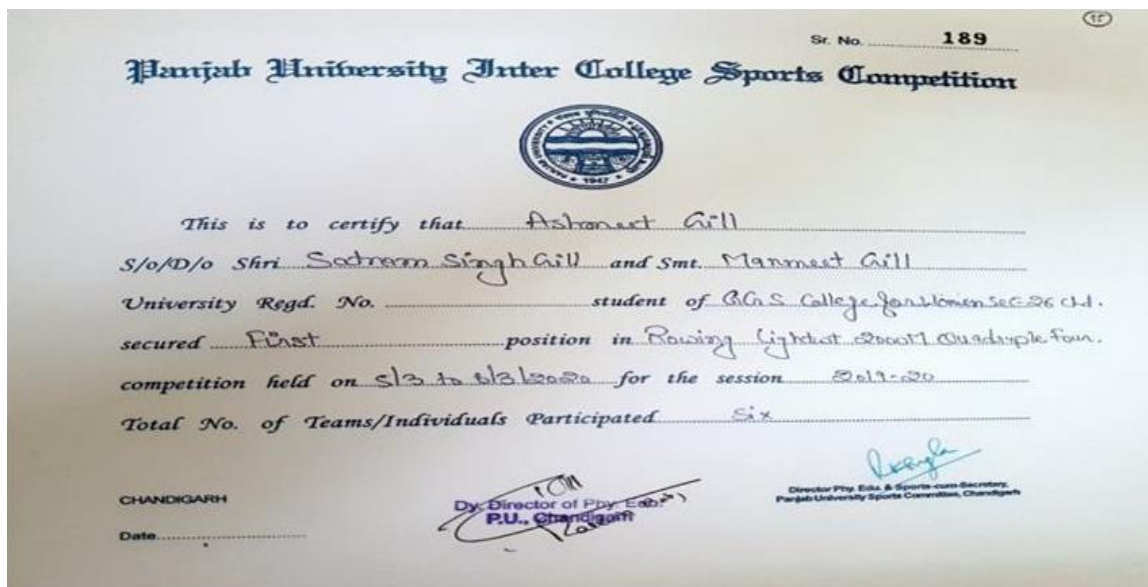 15
Sr. No. 189
Panjab University Inter College Sports Competition
PANJAB UNIVERSITY
1947
This is to certify that Ashoneet Gill
S/o/D/o Shri Satnam Singh Gill and Smt. Manmeet Gill
University Regd. No. student of GGS College for Women Sec-26 Chd.
secured First position in Rowing Lightwt 2000M Quadruple four.
competition held on 5/3 to 8/3/2020 for the session 2019-20
Total No. of Teams/Individuals Participated Six
CHANDIGARH
Date
Dy. Director of Phy. Edu.
P.U., Chandigarh
Director Phy. Edu. & Sports-cum-Secretary,
Panjab University Sports Committee, Chandigarh